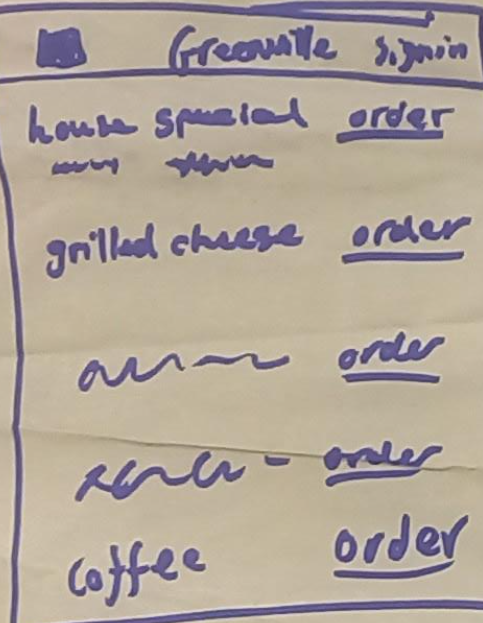 Greenville signin
house special order
grilled cheese order
order
order
coffee order